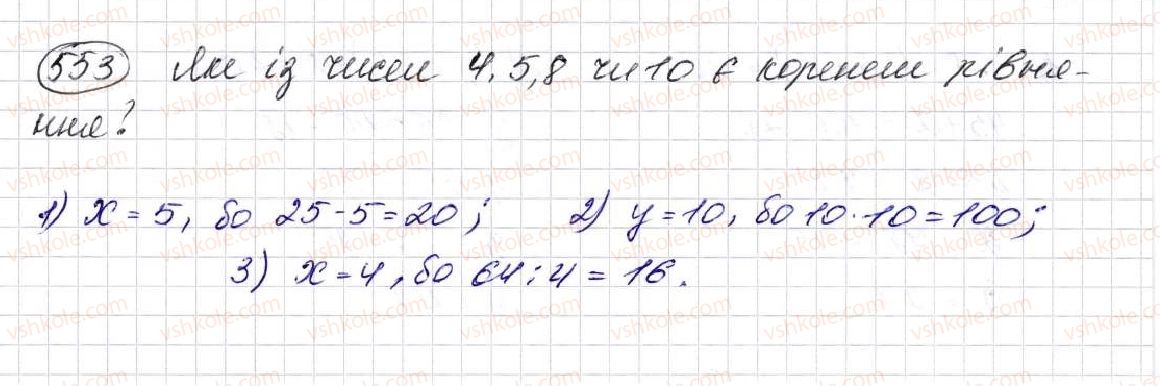 553 Яке із чисел 4, 5, 8 чи 10 є коренем рівня-
ння?
1) x = 5, бо 25 - 5 = 20; 2) y = 10, бо 10 · 10 = 100;
3) x = 4, бо 64 : 4 = 16.